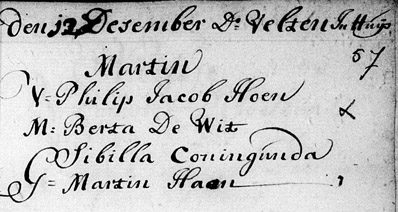 den 12 Desember Ds Velsen In Huijs
57
Martin
V= Philip Jacob Hoen
M: Berta De Wit
Sibilla Coningunda
G= Martin Haen